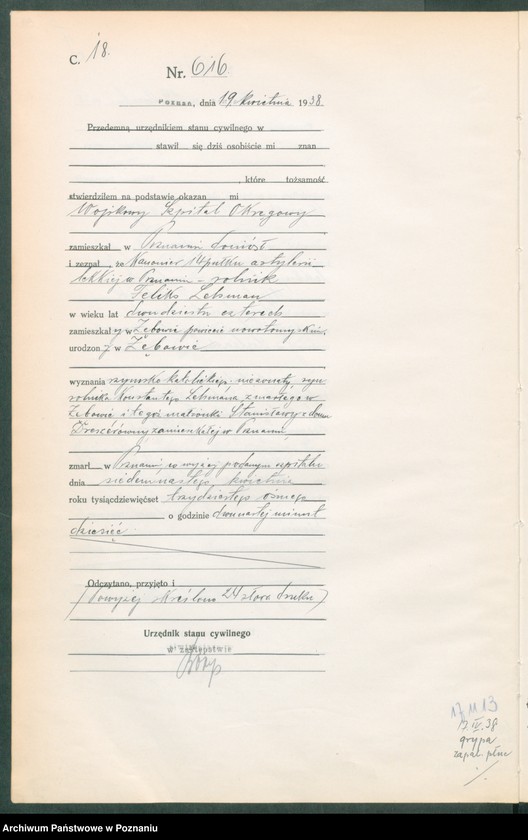 C. 18.
Nr. 616
Poznań, dnia 19 kwietnia 1938.
Przedemną urzędnikiem stanu cywilnego w
stawił się dziś osobiście mi znan
które tożsamość
stwierdziłem na podstawie okazan mi
Wojskowy Szpital Okręgowy
zamieszkał w Poznaniu doniósł
i zeznał, że Kanonier 14 pułku artylerii
lekkiej w Poznaniu - rolnik
Feliks Lehman
w wieku lat dwudziestu czterech
zamieszkał y w Zębowie powiecie nowotomyskim,
urodzon y w Zębowie
wyznania rzymsko katolickiego, nieżonaty, syn
rolnika Konstantego Lehmana zmarłego w
Zębowie i tegoż małżonki Stanisławy z domu
zamieszkałej w Poznaniu,
zmarł w Poznaniu, w wyżej podanym szpitalu
dnia siedemnastego kwietnia
roku tysiącdziewięćset trzydziestego ósmego
o godzinie dwunastej minut
dziesięć.
Odczytano, przyjęto i
(Powyżej skreślono 24 słowa druku)
Urzędnik stanu cywilnego
w zastępstwie
17 11 13
17.IV.38
grypa
zapal. płuc
Archiwum Państwowe w Poznaniu